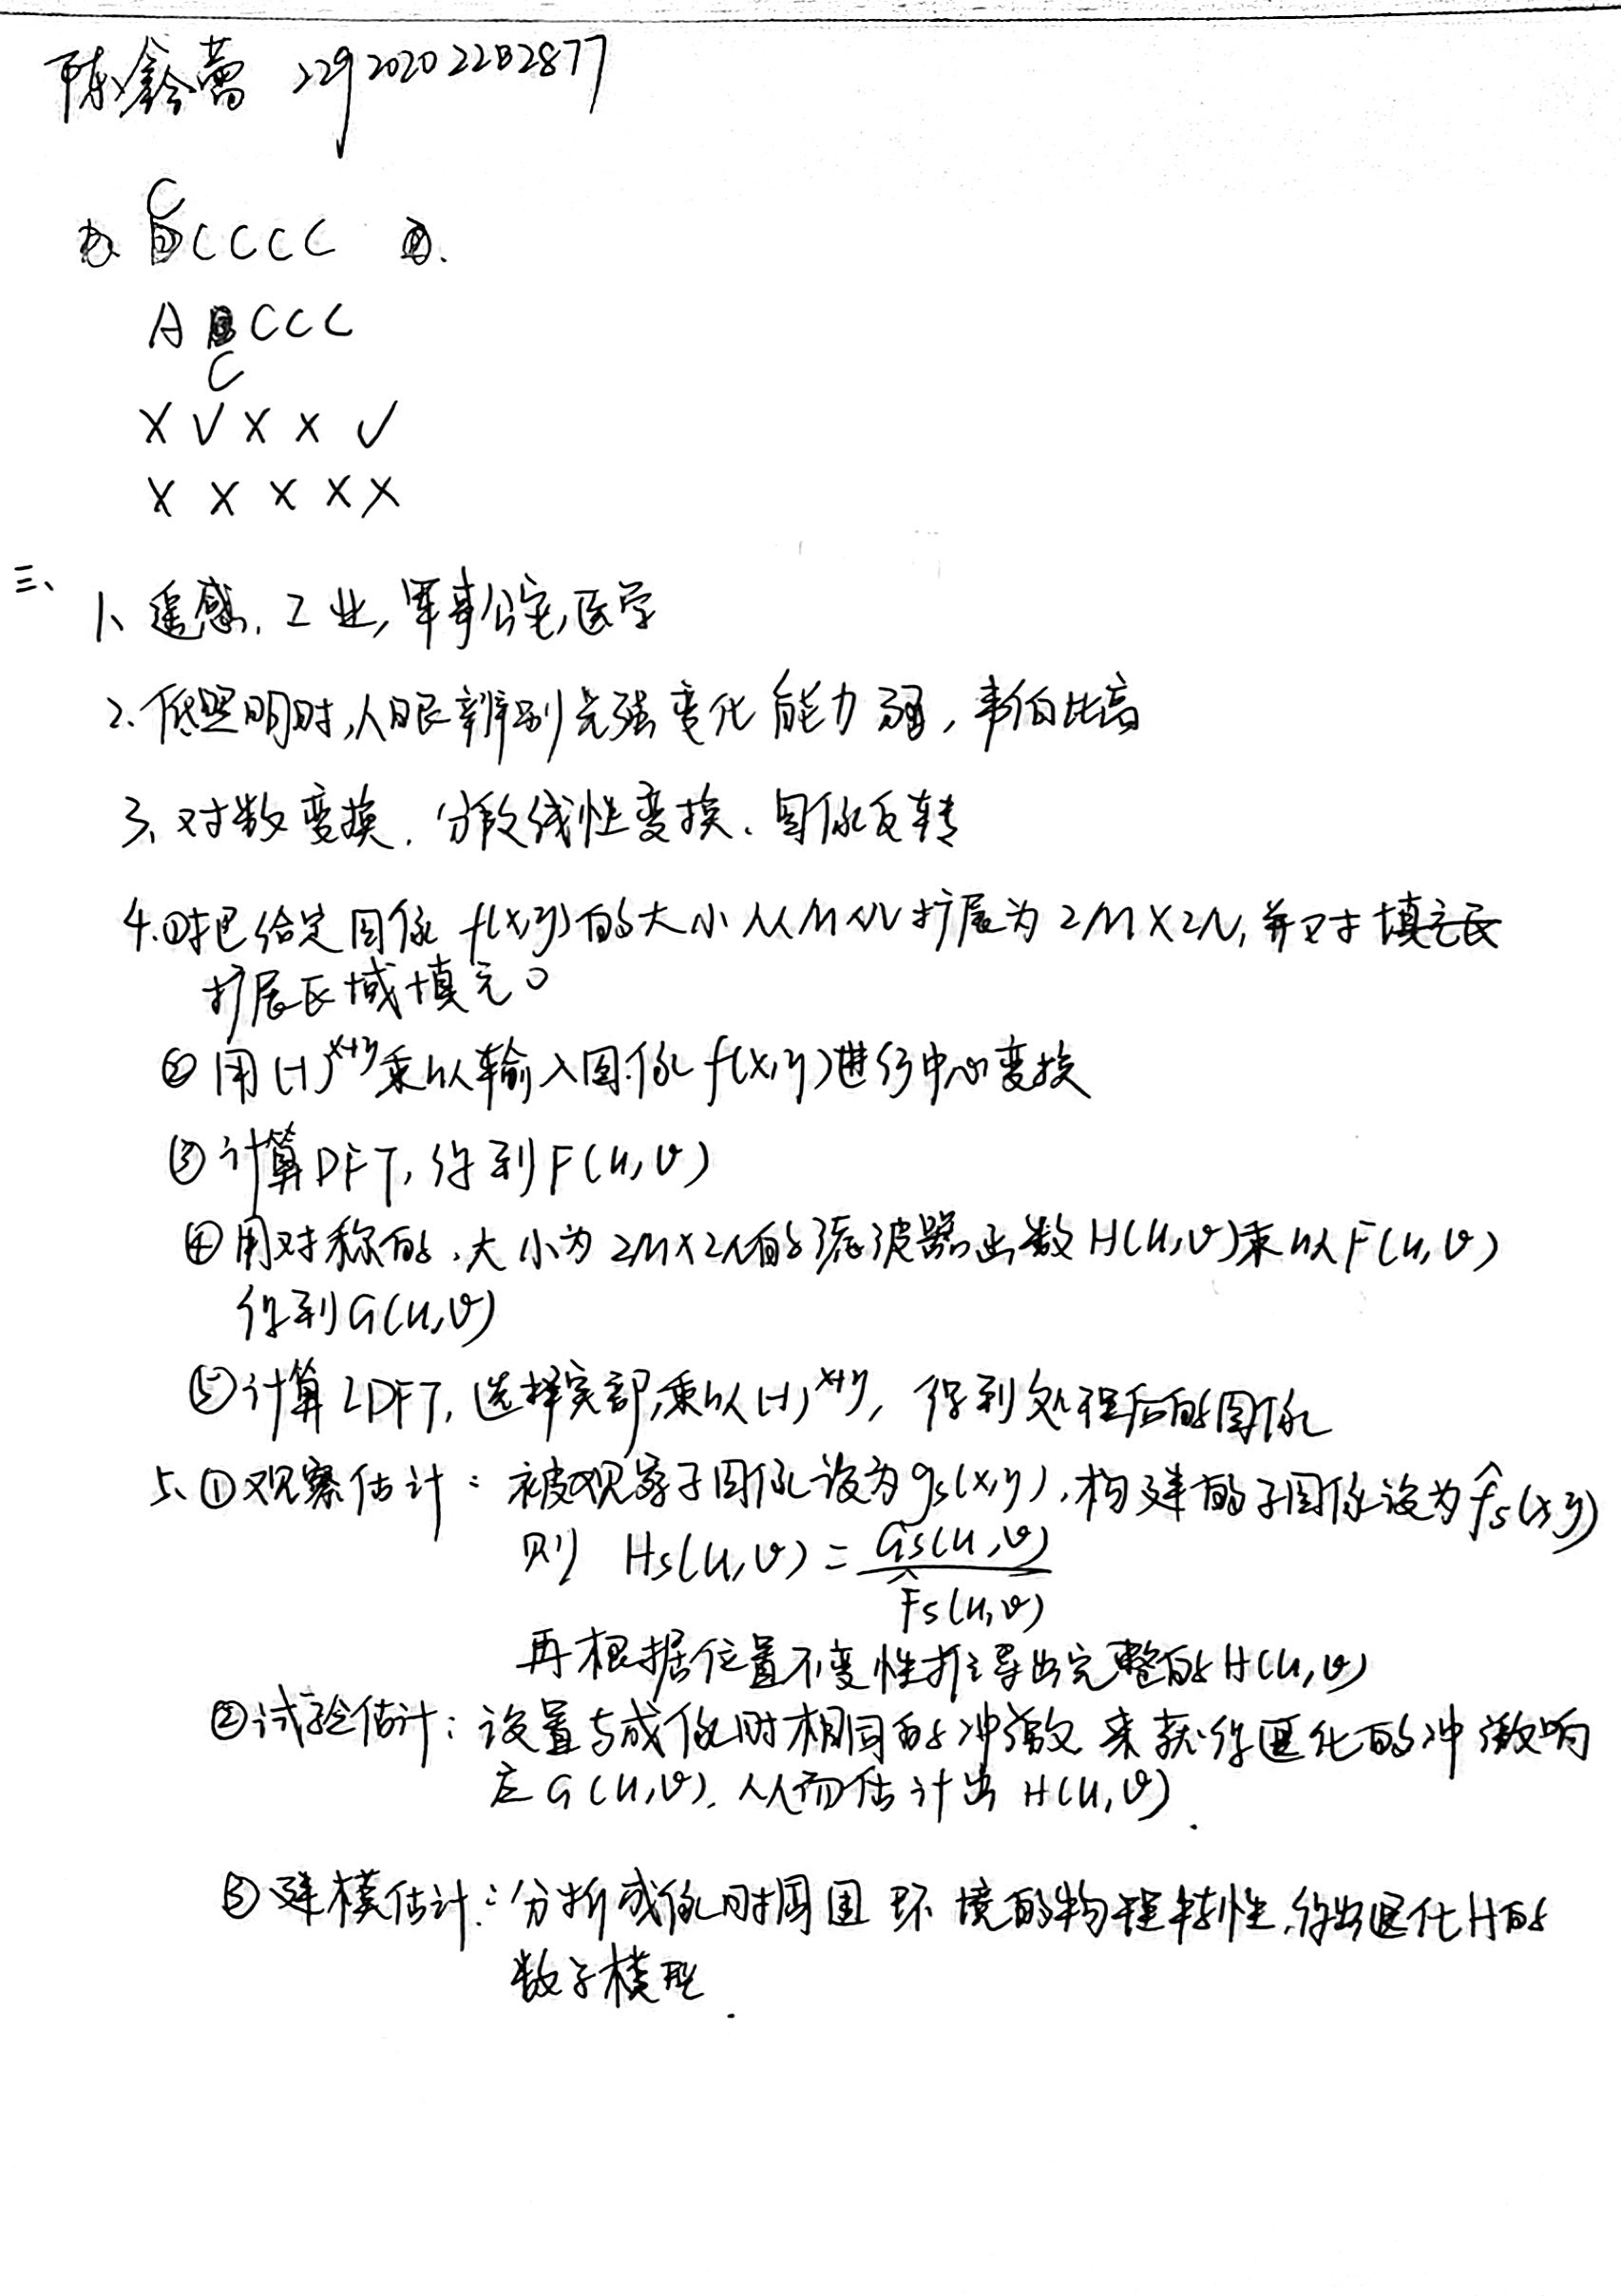 陈鑫蕾 229202022B2877
C
CCCC
A CCC
C
X √ X X √
X X X X X
三、
1、遥感、工业,军事公安,医学
2、低照明时,人眼辨别光强变化能力弱,韦伯比高
3、对数变换、分段线性变换、图像反转
4.①把给定图像f(x,y)的大小从M×N扩展为2M×2N,并对填充区
扩展区域填充0
②用(-1)^{x+y}乘以输入图像f(x,y)进行中心变换
③计算DFT,得到F(u,v)
④用对称的、大小为2M×2N的滤波器函数H(u,v)乘以F(u,v)
得到G(u,v)
⑤计算IDFT,选择实部,乘以(-1)^{x+y},得到处理后的图像
5、①观察估计:被观察子图像设为gs(x,y),构建的子图像设为f̂s(x,y)
则 Hs(u,v)=Gs(u,v)/F̂s(u,v)
再根据位置不变性推导出完整的H(u,v)
②试验估计:设置与成像时相同的冲激来获得退化的冲激响
应G(u,v),从而估计出H(u,v).
③建模估计:分析成像时周围环境的物理特性,得出退化H的
数学模型.